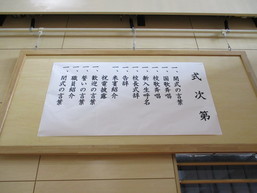 式次第
一、開式の言葉
一、国歌斉唱
一、校歌斉唱
一、新入生呼名
一、校長式辞
一、告辞
一、来賓紹介
一、祝電披露
一、歓迎の言葉
一、誓いの言葉
一、職員紹介
一、閉式の言葉